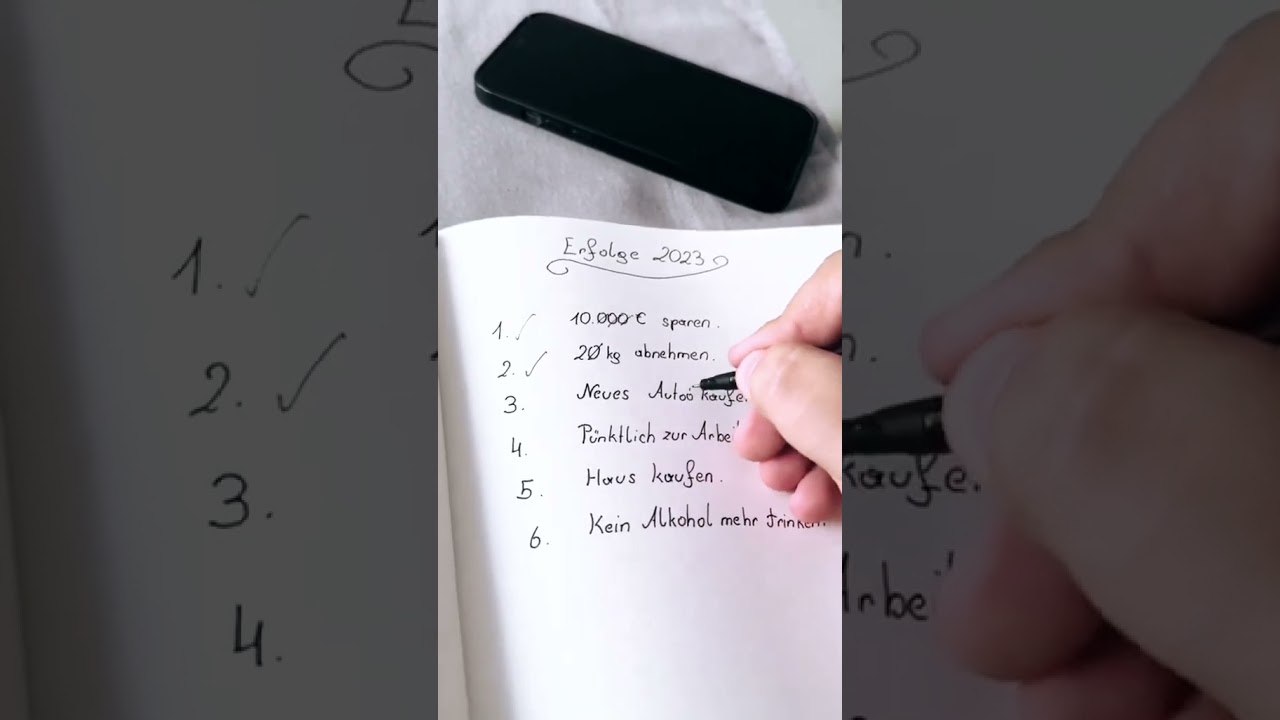 Erfolge 2023
1. ✓ 10.000€ sparen.
2. ✓ 20 kg abnehmen.
3. Neues Autoö kaufe.
4. Pünktlich zur Arbei
5. Haus kaufen.
6. Kein Alkohol mehr trinken.